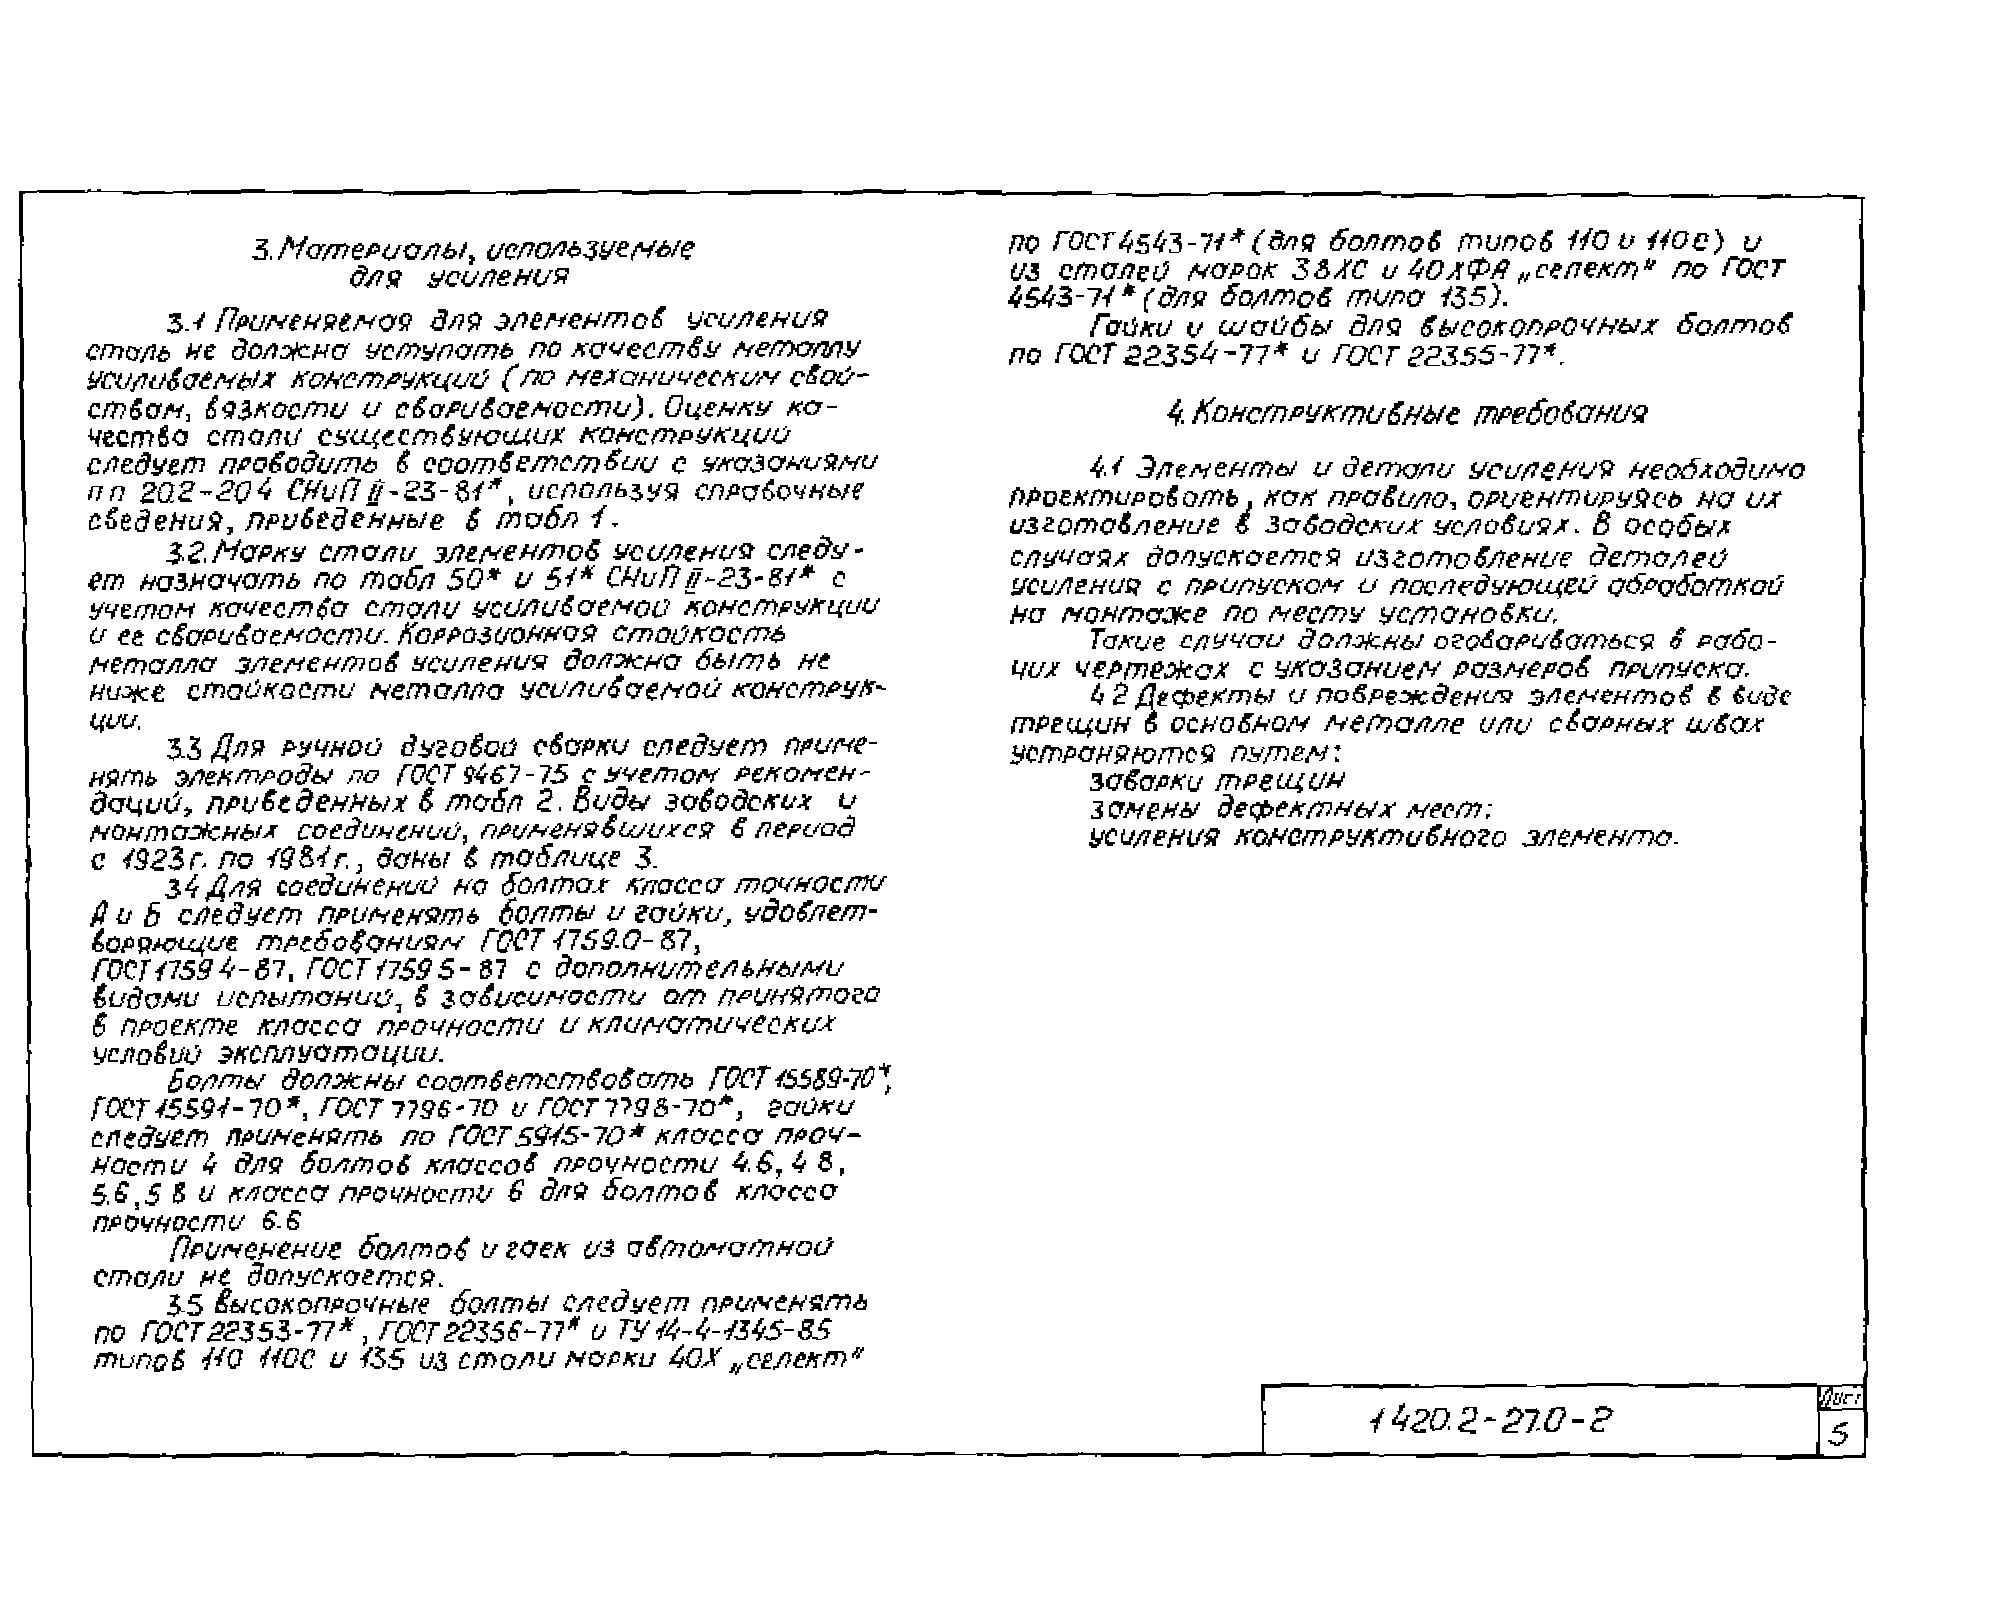 3. Материалы, используемые
для усиления
3.1 Применяемая для элементов усиления
сталь не должна уступать по качеству металлу
усиливаемых конструкций (по механическим свой-
ствам, вязкости и свариваемости). Оценку ка-
чества стали существующих конструкций
следует проводить в соответствии с указаниями
п п 20.2-20 4 СНиП II-23-81*, используя справочные
сведения, приведенные в табл 1.
3.2. Марку стали элементов усиления следу-
ет назначать по табл 50* и 51* СНиП II-23-81* с
учетом качества стали усиливаемой конструкции
и ее свариваемости. Коррозионная стойкость
металла элементов усиления должна быть не
ниже стойкости металла усиливаемой конструк-
ции.
3.3 Для ручной дуговой сварки следует приме-
нять электроды по ГОСТ 9467-75 с учетом рекомен-
даций, приведенных в табл 2. Виды заводских и
монтажных соединений, применявшихся в период
с 1923 г. по 1981 г., даны в таблице 3.
3.4 Для соединений на болтах класса точности
А и Б следует применять болты и гайки, удовлет-
воряющие требованиям ГОСТ 1759.0-87,
ГОСТ 1759 4-87, ГОСТ 1759 5-87 с дополнительными
видами испытаний, в зависимости от принятого
в проекте класса прочности и климатических
условий эксплуатации.
Болты должны соответствовать ГОСТ 15589-70*,
ГОСТ 15591-70*, ГОСТ 7796-70 и ГОСТ 7798-70*, гайки
следует применять по ГОСТ 5915-70* класса проч-
ности 4 для болтов классов прочности 4.6, 4 8,
5.6, 5 8 и класса прочности 6 для болтов класса
прочности 6.6
Применение болтов и гаек из автоматной
стали не допускается.
3.5 Высокопрочные болты следует применять
по ГОСТ 22353-77*, ГОСТ 22356-77* и ТУ 14-4-1345-85
типов 110 110С и 135 из стали марки 40Х „селект"
по ГОСТ 4543-71* (для болтов типов 110 и 110С) и
из сталей марок 38ХС и 40ХФА „селект" по ГОСТ
4543-71* (для болтов типа 135).
Гайки и шайбы для высокопрочных болтов
по ГОСТ 22354-77* и ГОСТ 22355-77*.
4. Конструктивные требования
4.1 Элементы и детали усиления необходимо
проектировать, как правило, ориентируясь на их
изготовление в заводских условиях. В особых
случаях допускается изготовление деталей
усиления с припуском и последующей обработкой
на монтаже по месту установки.
Такие случаи должны оговариваться в рабо-
чих чертежах с указанием размеров припуска.
4 2 Дефекты и повреждения элементов в виде
трещин в основном металле или сварных швах
устраняются путем:
заварки трещин
замены дефектных мест;
усиления конструктивного элемента.
1 420.2-27.0-2
Лист
5